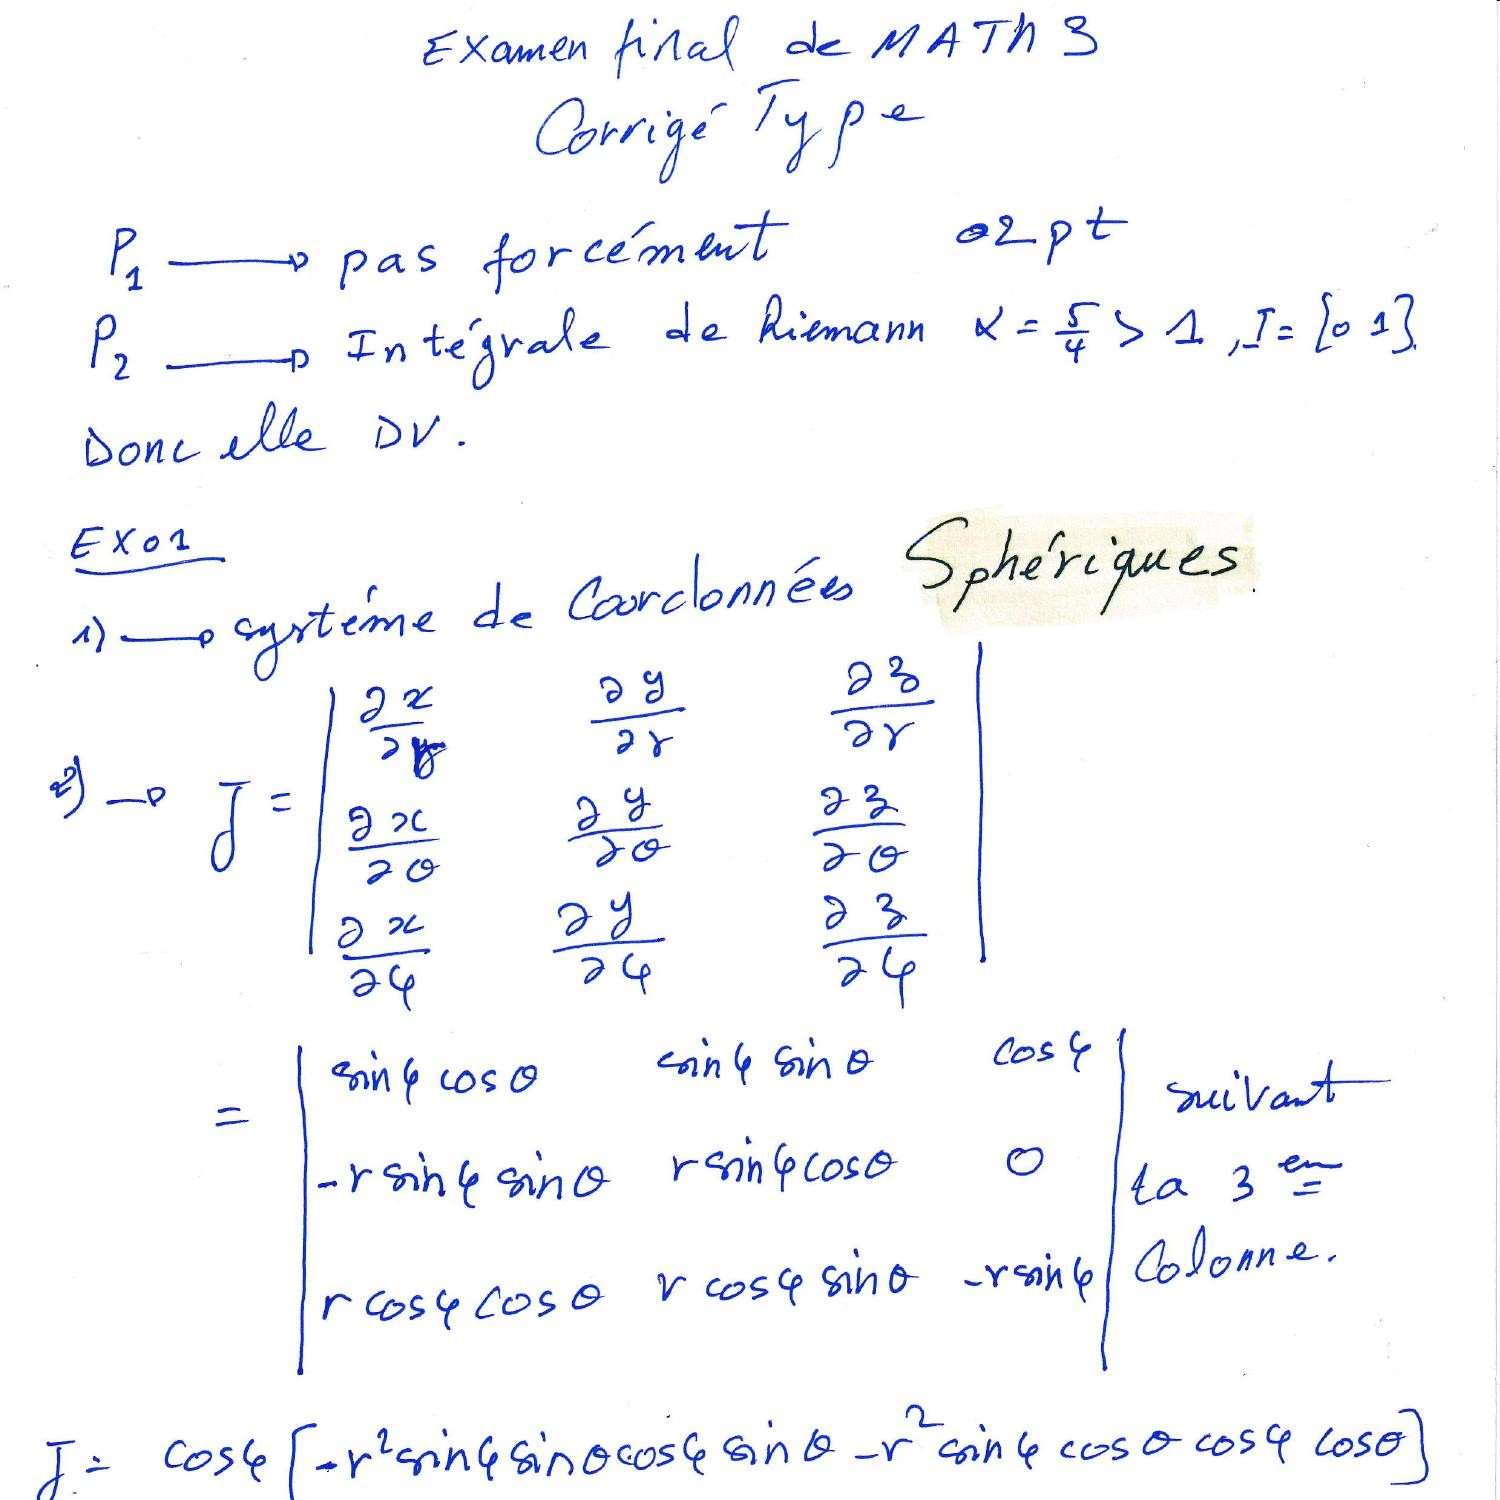 Examen final de MATH 3
Corrigé Type
P₁ → pas forcément 02 pt
P₂ → Intégrale de Riemann α = 5/4 > 1 , I = [0 1]
Donc elle DV.
EX01
1) → systéme de Coordonnées Sphériques
2) → J = | ∂x/∂r ∂y/∂r ∂z/∂r |
| ∂x/∂θ ∂y/∂θ ∂z/∂θ |
| ∂x/∂φ ∂y/∂φ ∂z/∂φ |
= | sinφ cosθ sinφ sinθ cosφ | suivant
| -r sinφ sinθ r sinφ cosθ 0 | la 3 em
| r cosφ cosθ r cosφ sinθ -r sinφ | Colonne.
J = cosφ [-r² sinφ sinθ cosφ sinθ - r² sinφ cosθ cosφ cosθ]